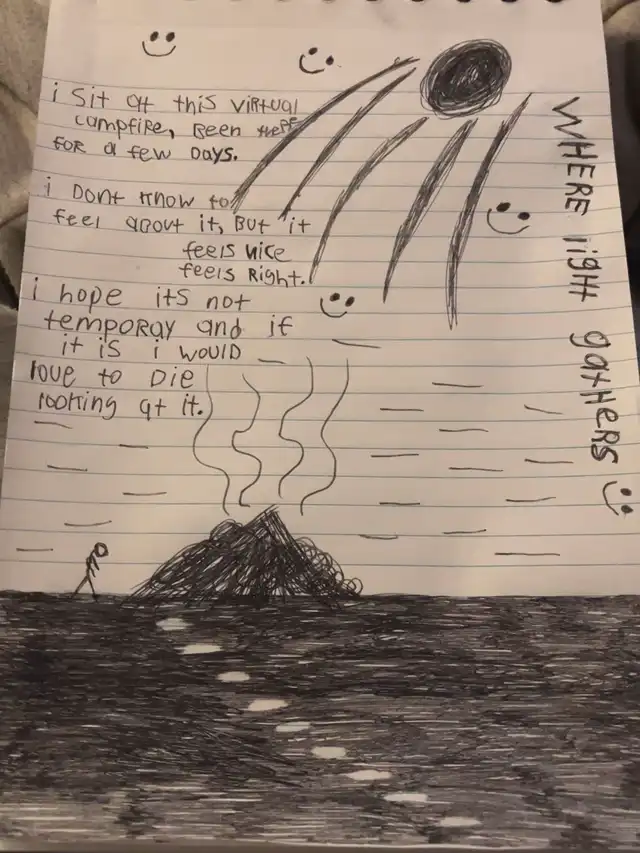 i sit at this virtual
campfire, Been here
for a few Days.
i Dont know to
feel about it, But it
feels nice
feels Right.
i hope its not
temporay and if
it is i would
love to Die
looking at it.
WHERE light gathers